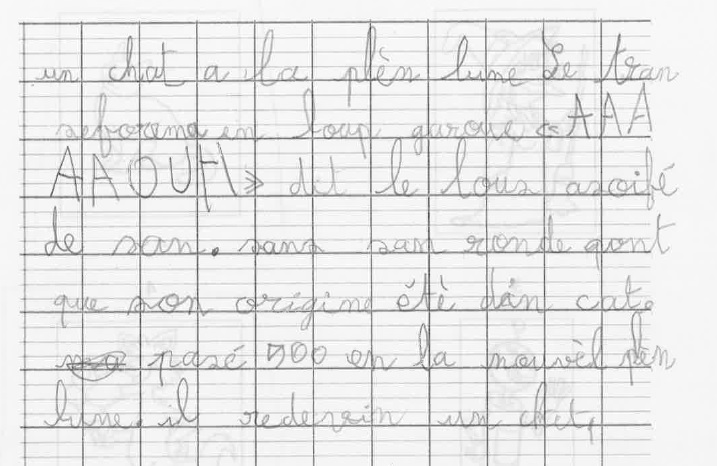 un chat a la plèn lune Se tran
seforma en loup garoue « AAA
AAOUH » dit le lous asoifé
de san. sans san ronde qont
que son origine étè dân cat.
pasé 500 en la nouvèl plèn
lune. il redevin un chat,